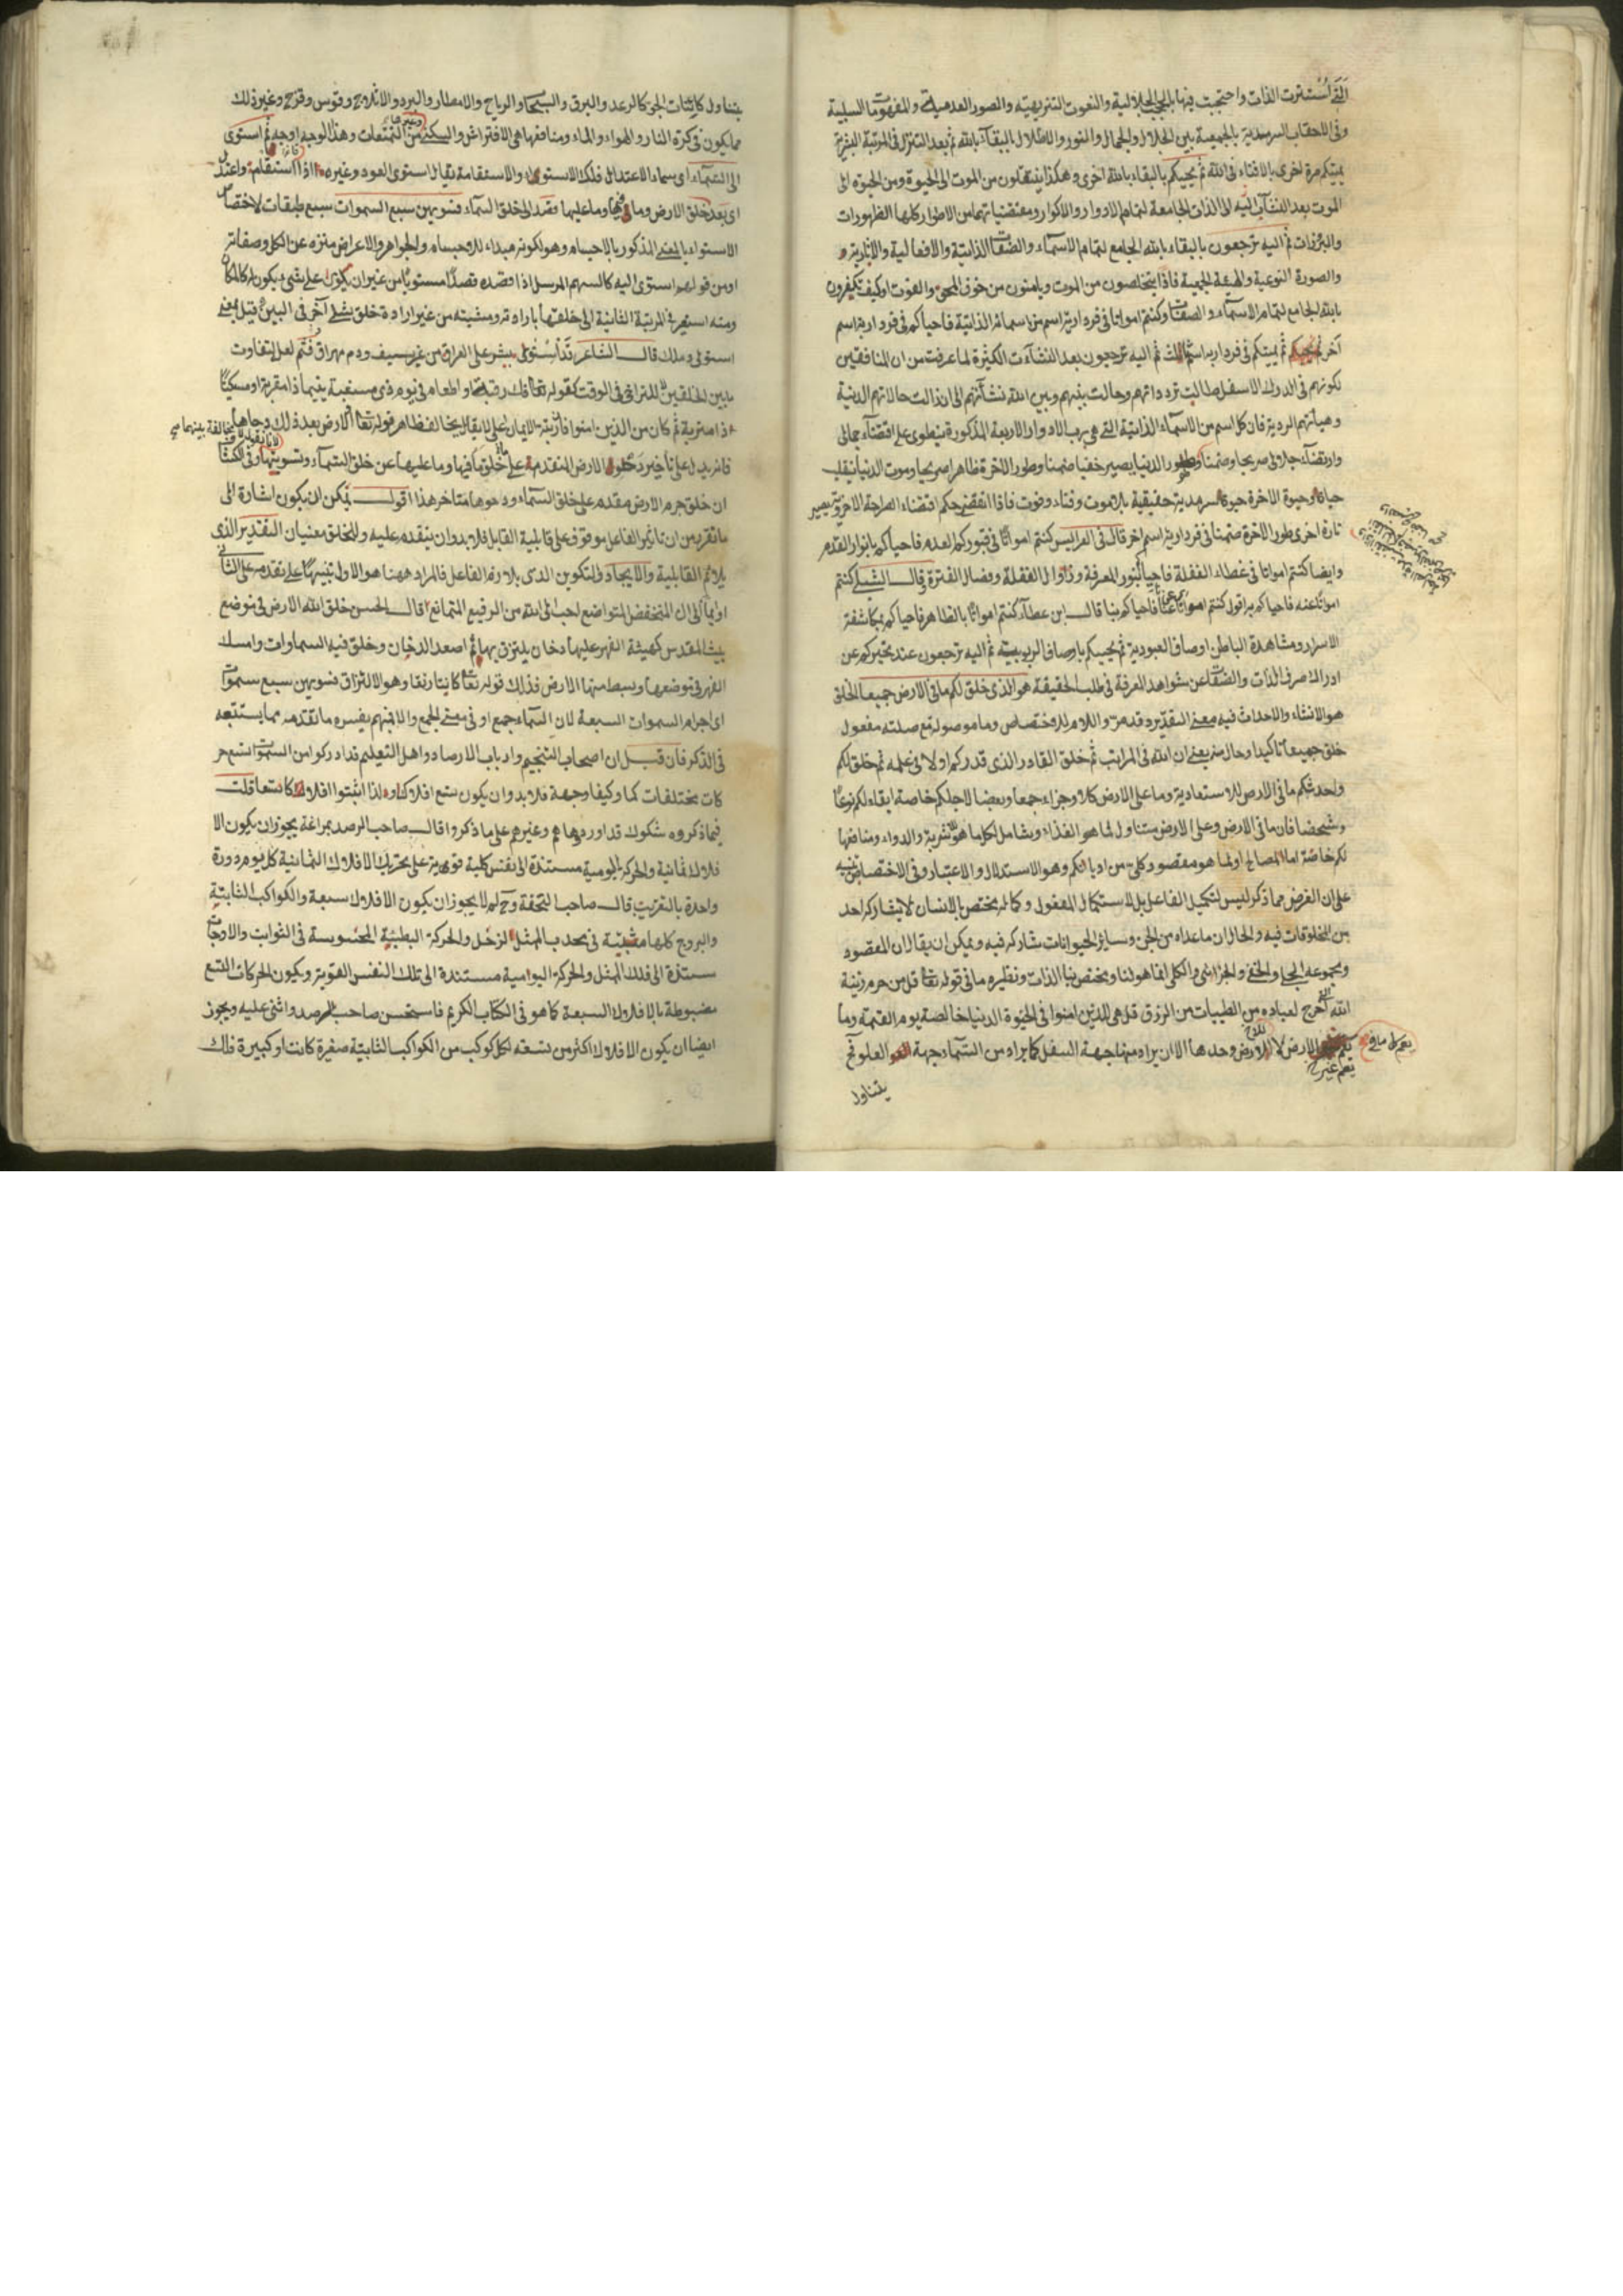 التى استترت الذات واحتجبت فيها بالحجب الجلالية والنعوت التنزيهية والصور العدمية والمفهومات السلبية
وفى الاحقاب السرمدية بالجمعية بين الجلال والجمال والنور والاظلال بالبقاء بالله ثم بعد التنزل فى المرتبة البشرية
يميتكم مرة اخرى بالافناء فى الله ثم يحييكم بالبقاء بالله اخرى وهكذا ينتقلون من الموت الى الحيوة ومن الحيوة الى
الموت بعد النشآت اليه الى الذات الجامعة لتمام الادوار والاكوار ومقتضياتها من الاطوار كلها الظهورات
والبرزات ثم اليه ترجعون بالبقاء بالله الجامع لتمام الاسماء والصفات الذاتية والافعالية والاثارية
والصورة النوعية والهيئة الجمعية فاذا يتخلصون من الموت ويامنون من خوف المحق والفوت او كيف تكفرون
بالله الجامع لتمام الاسماء والصفات وكنتم امواتا فى فردارية اسم من اسمائه الذاتية فاحياكم فى فردارية اسم
آخر ثم يميتكم فى فردارية اسم ثالث ثم اليه ترجعون بعد النشاءت الكثيرة لما عرفت من ان المنافقين
لكونهم فى الدرك الاسفل طالبت ترددائهم وحالت بينهم وبين الله نشأتهم الى ان ذالت حالاتهم الدنية
وهيأتهم الردية فان كل اسم من الاسماء الذاتية التى هى رب الادوار الاربعة المذكورة ينطوى على اقتضاء جمالى
وارتضاء جلالى صريحا وضمنا وطور الدنيا يصير خفيا ضمنا وطور الاخرة ظاهرا صريحا وموت الدنيا ينقلب
حياة وحيوة الاخرة حيوة سرمدية حقيقية بلا موت وفناء وفوت فاذا انقضى حكم اقتضاء المراحة الاخروية يصير
تارة اخرى طور الاخرة ضمنا فى فردارية اسم اخر قال فى العرايس كنتم امواتا فى قبور كم العدم فاحياكم بانوار القدم
وايضا كنتم امواتا فى غطاء الغفلة فاحياكم بنور المعرفة وزوال الغفلة وفصال الفترة قال الشبلى كنتم
امواتا عنه فاحياكم به اقول كنتم امواتا عنا فاحياكم بنا قال ابن عطاء كنتم امواتا بالظاهر فاحياكم بمكاشفة
الاسرار ومشاهدة الباطن اوصاف العبودية ثم يحييكم باوصاف الربوبيته ثم اليه ترجعون عند تحيركم عن
ادراك صرف الذات والصفات عن شواهد المعرفة فى طلب الحقيقة هو الذى خلق لكم ما فى الارض جميعا الخلق
هو الانشاء والاحداث فيه معنى التقدير وقد مر واللام للاختصاص وما موصولة مع صلته مفعول
خلق جميعا تاكيد او حال منه يعنى ان الله فى المراتب ثم خلق القادر الذى قدركم اولا فى علمه ثم خلق لكم
واحدثكم ما فى الارض للاستعادية وما على الارض كلا وجزاء جمعا وبعضا لاجلكم خاصة ابقاء لكم نوعا
وشخصا فان ما فى الارض وعلى الارض متناول لما هو الغذاء وشامل لكل ما هو شربة والدواء ومنافعها
لكم خاصة اما المصالح اولما هو مقصود كلى من اديانكم وهو الاستدلال والاعتبار وفى الاختصاص تنبيه
على ان الغرض مما ذكر ليس لتكميل الفاعل بل لاستكمال المفعول وكماله يختص بالانسان لا يشاركه احد
من المخلوقات فيه والحال ان ما عداه من الجن وسائر الحيوانات شاركه فيه ويمكن ان يقال ان المقصود
ومجموعه الجلى والخفى والجزئى والكلى انما هو لنا ويختص بنا الذات ونظيره ما فى قوله تعالى قل من حرم زينة
الله التى اخرج لعباده من الطيبات من الرزق قل هى للذين امنوا فى الحيوة الدنيا خالصة يوم القيمة وما
الارض لا الارض وحدها الا ان يراد منها جهة السفل كما يراد من السماء جهة العلو فح
يعم غير
يتناول
يتناول كائنات الجو كالرعد والبرق والسحاب والرياح والامطار والبرد والاثلاج وقوس وقزح وغير ذلك
مما يكون فى كرة النار والهواء والماء ومنافعها هى الافتراش والسكنى وغيرها من التمتعات وهذا الوجه اوجه ثم استوى
الى السماء اى سماء الاعتدال فلك الاستواء والاستقامة يقال استوى العود وغيره اذا استقام واعتدل
اى بعد خلق الارض وما فيها وما عليها قصد الى خلق السماء فسويهن سبع السموات سبع طبقات لاختصاص
الاستواء بالمعنى المذكور بالاجسام وهو لكونه مبداء للاجسام والجواهر والاعراض منزه عن الكل وصفاته
او من قولهم استوى اليه كالسهم المرسل اذا قصده قصدا مستويا من غير ان يلوى على شئ يكون له كالمكان
ومنه استعير فى المرتبة الثانية الى خلقها بارادته ومشيته من غير ارادة خلق شئ آخر فى البين قيل بمعنى
استولى وملك قال الشاعر قد استوى بشر على العراق من غير سيف ودم مهراق فثم لعل لتفاوت
ما بين الخلقين لا للتراخى فى الوقت كقوله تعالى فك رقبة او اطعام فى يوم ذى مسغبة يتيما ذا مقربة او مسكينا
ذا متربة ثم كان من الذين امنوا فان رتبة الايمان اعلى لا يقال يخالف ظاهر قوله تعالى الارض بعد ذلك دحاها
فانه يدل على تأخير دحو الارض المتقدمة على خلق ما فيها وما عليها عن خلق السماء وتسويتها وفى الكشاف
ان خلق جرم الارض مقدم على خلق السماء ودحوها متاخر هذا اقول يمكن ان يكون اشارة الى
ما تقرر من ان تاثير الفاعل موقوف على قابلية القابل فلا بد وان يتقدم عليه وللخلق معنيان التقدير الذى
يلائم القابلية والايجاد والتكوين الذى يلازم الفاعل فالمراد ههنا هو الاول تنبيها على تقدمه على الثانى
او ايماء الى ان المنخفض المتواضع احب الى الله من الرفيع المتمانع قال الحسن خلق الله الارض فى موضع
بيت المقدس كهيئة الفهر عليها دخان يلتزق بها ثم اصعد الدخان وخلق فيه السماوات وامسك
الفهر فى موضعها وبسط منها الارض فذلك قوله تعالى كانتا رتقا وهو الالتزاق فسويهن سبع سموات
اى اجرام السموات السبعة لان السماء جمع او فى معنى الجمع والا فبهم يفسره ما تقدمه مما يستتبعه
فى الذكر فان قيل ان اصحاب التنجيم وارباب الارصاد واهل التعليم قد ادركوا من السموات السبع حر
كات مختلفات كما وكيفا وجهة فلا بد وان يكون تسع افلاك ولذا اثبتوا افلاكا تسعا قلت
فيما ذكروه شكوك قد اوردها هم وغيرهم على ما ذكروا قال صاحب الرصد بمراغة يجوز ان يكون الا
فلاك ثمانية والحركة اليومية مستندة الى نفس كلية قوية على تحريك الافلاك الثمانية كل يوم دورة
واحدة بالتقريب قال صاحب التحفة وح لم لا يجوز ان يكون الافلاك سبعة والكواكب الثابتة
والبروج كلها مثبتة فى محدب الممثل لزحل والحركة البطيئة المحسوسة فى الثوابت والاوجات
مستندة الى فلك الممثل والحركة اليوامية مستندة الى تلك النفس القوية ويكون الحركات التسع
مضبوطة بالافلاك السبعة كما هو فى الكتاب الكريم فاستحسن صاحب الرصد واثنى عليه ويجوز
ايضا ان يكون الافلاك اكثر من تسعة لكل كوكب من الكواكب الثابتة صغيرة كانت او كبيرة فلك